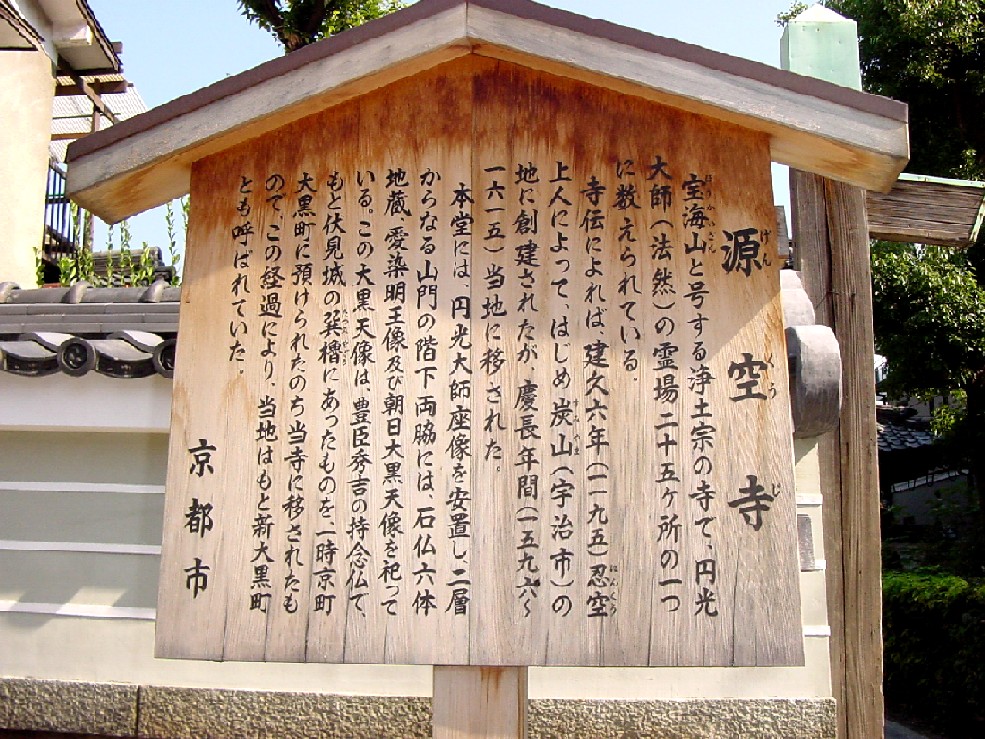 源空寺
宝海山と号する浄土宗の寺で、円光
大師(法然)の霊場二十五ヶ所の一つ
に数えられている。
寺伝によれば、建久六年(一一九五)忍空
上人によって、はじめ炭山(宇治市)の
地に創建されたが、慶長年間(一五九六〜
一六一五)当地に移された。
本堂には、円光大師座像を安置し、二層
からなる山門の階下両脇には、石仏六体
地蔵、愛染明王像及び朝日大黒天像を祀って
いる。この大黒天像は、豊臣秀吉の持念仏で、
もと伏見城の巽櫓にあったものを、一時京町
大黒町に預けられたのち当寺に移されたも
ので、この経過により、当地はもと新大黒町
とも呼ばれていた。
京都市